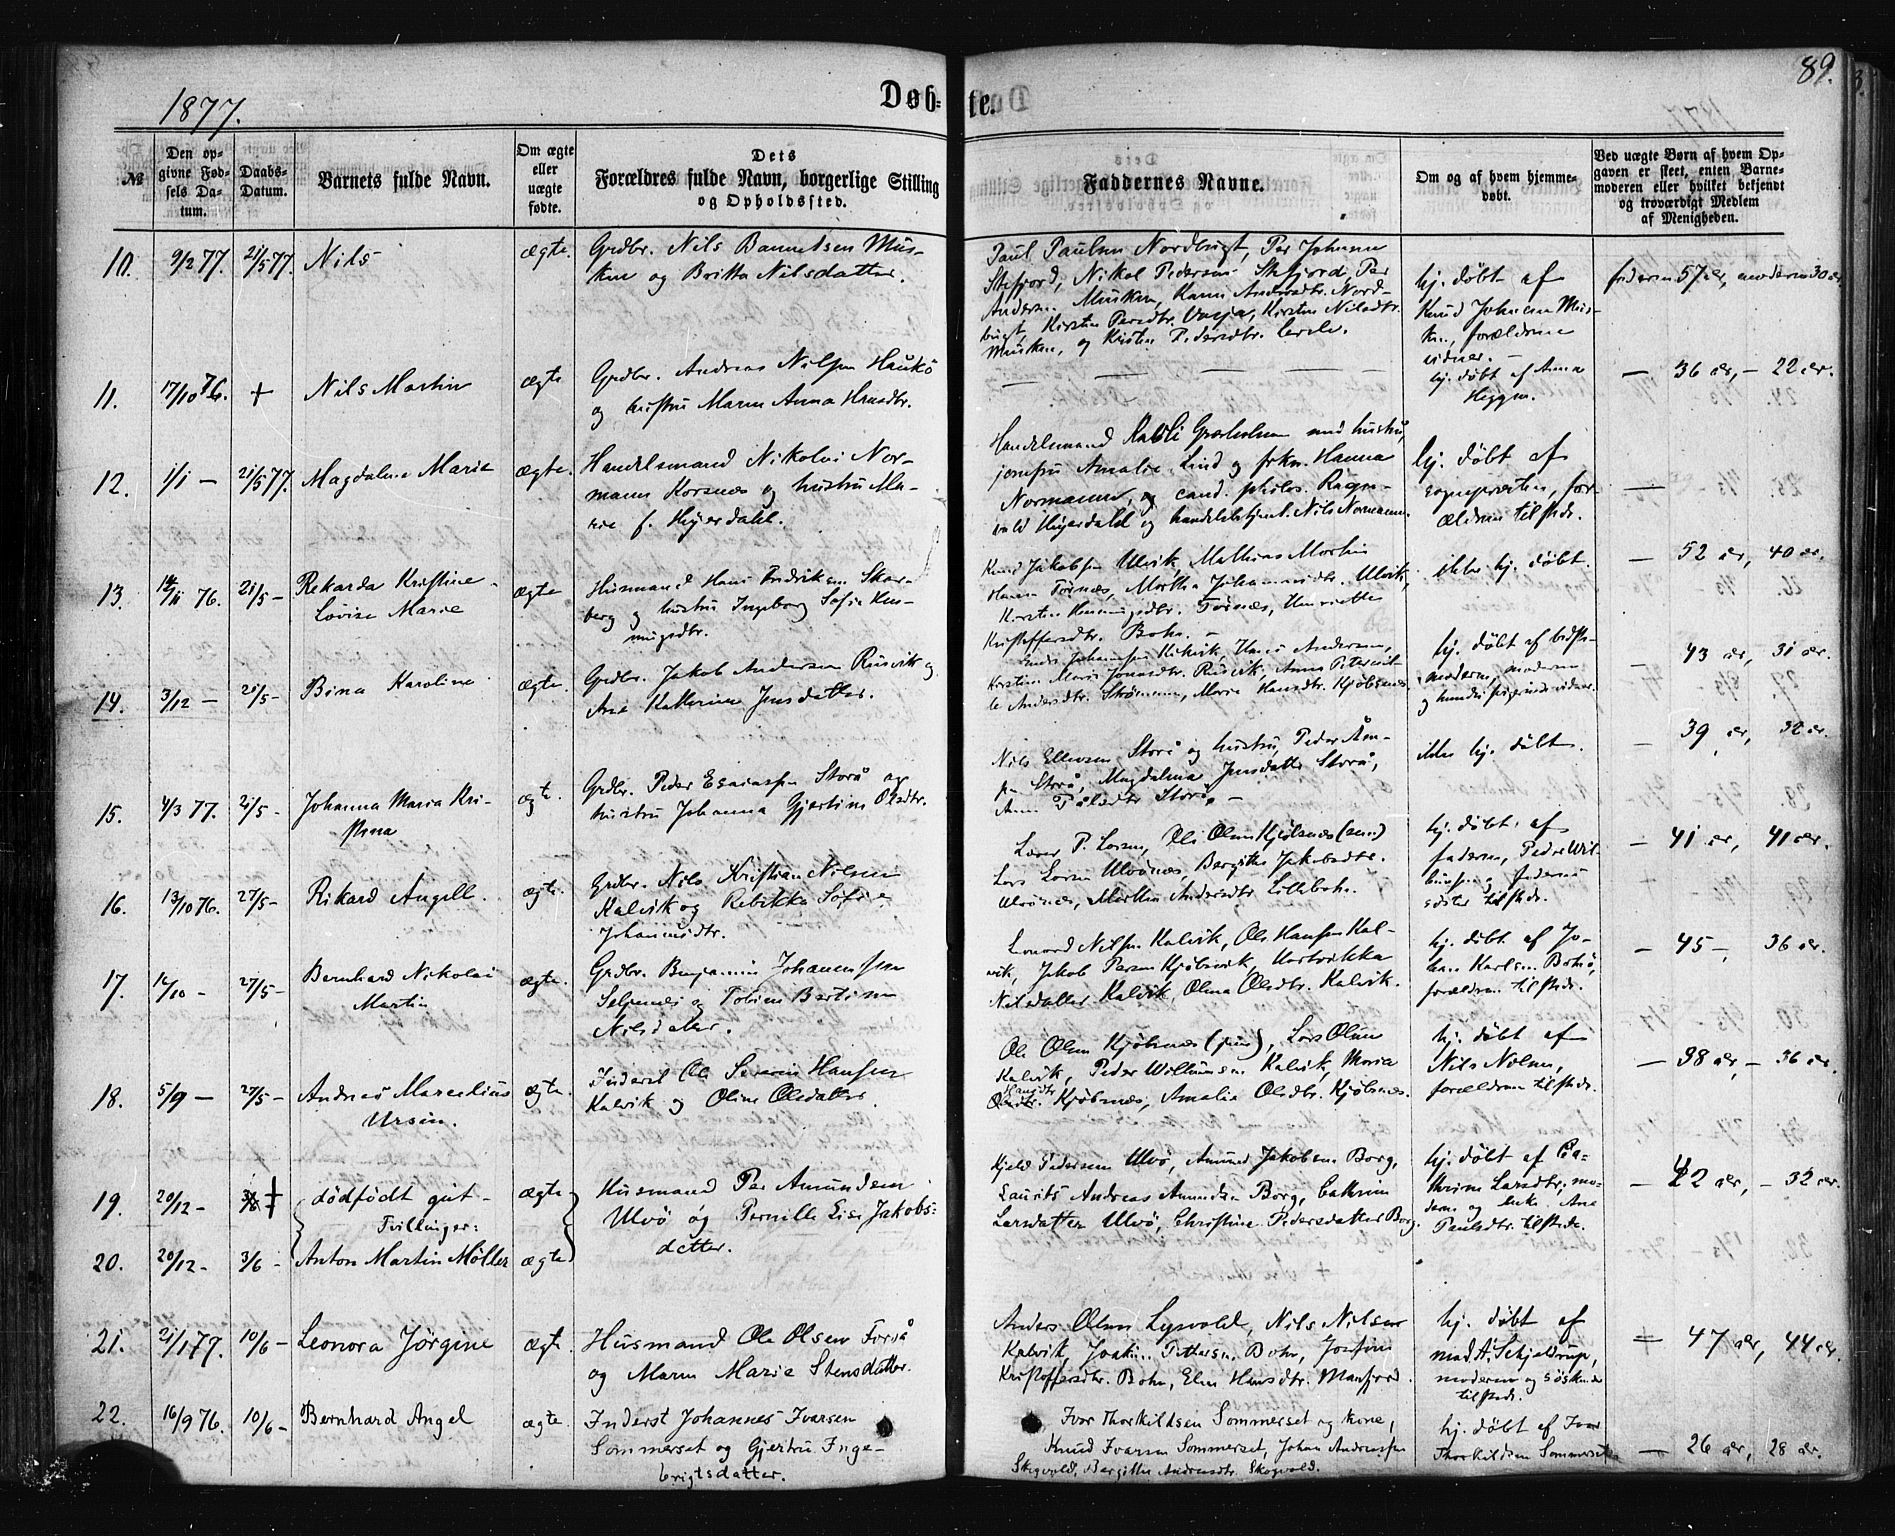 89.
1877.
Døb=
te.
№
Den op-
givne Fød-
sels Da-
tum.
Daabs-
Datum.
Barnets fulde Navn.
Om ægte
eller
uægte
fødte.
Dets
Forældres fulde Navn, borgerlige Stilling
og Opholdssted.
Faddernes Navne.
Om og af hvem hjemme-
døbt.
Ved uægte Børn af hvem Op-
gaven er skeet, enten Barne-
moderen eller hvilket bekjendt
og troværdigt Medlem
af Menigheden.
10. 9/2 77. 21/5 77. Nils ægte.
Grdbr. Nils
og Britta Nilsdatter.
Paul Paulsen Nordbugt, Per Johnsen
Stefjord, Nikol Pedersen Stefjord, Per
Andersen Musken, Karen Andersdtr. Nord-
bugt, Kirsten Persdtr. Kirsten Nilsdtr.
Musken, og Kirsten Pedersdtr.
hj. døbt af
Knud Johnsen Mus-
ken, forældrene
vidner. -
faderen 57 år, moderen 30 år
11. 17/10 76. + Nils Martin ægte
Grdbr. Andreas Nilsen Haukø
og hustru Maren Anna Hansdtr.
— — — —
hj. døbt af Anna
Heggen.
— 36 år, — 22 år.
12. 1/1 — 21/5 77. Magdalene Marie ægte.
Handelsmand Nikolai Nor-
mann Korsnes og hustru Ma-
rie f. Heyerdahl.
Handelsmand med hustru,
jomfru Amalie Lind og frkn. Hanna
Normann, og cand. philos. Ragn-
vald Heyerdahl og handelsbetjent. Nils Normann.
hj. døbt af
sognepresten, for-
ældrene tilstede.
—
13. 14/11 76. 21/5 - Rekarda Kristine
Lovise Marie
ægte
Husmand Hans Fredriksen Skar-
berg og hustru Ingeborg Sofie Hen-
ningsdtr.
Knud Jakobsen Ulvik, Mathias Martin
Hansen Tørnes, Martha Johannesdtr. Ulvik,
Kirsten Henningsdtr. Tørnes, Henriette
Kristoffersdtr. Bohn. -
ikke hj. døbt.
— 52 år, 40 år.
14. 3/12 — 21/5 - Bina Karoline ægte.
Grdbr. Jakob Andersen Rusvik og
Ane Katherine Jensdatter.
Johansen Kikvik, Hans Andersen,
Kirsten Marie Jonasdtr. Rusvik, Anne
Andersdtr. Strømmen, Marie Hansdtr. Kjøbsnes.
hj. døbt af bedste-
moderen, moderen
og
— 43 år, 31 år.
15. 4/3 77. 21/5 - Johanna Maria Kri-
stina
ægte.
Grdbr. Peder Esaiassen Storå og
hustru Johanna Gjertine Olsdtr.
Nils Ellevsen Storå og hustru, Peder Åm-
Storå, Magdalena Jensdatter Storå,
Anne Pålsdtr Storå, -
ikke hj. døbt.
— 39 år, 32 år.
16. 13/10 76. 27/5 - Rikard Angell. ægte.
Grdbr. Nils Kristian Nilsen
Kalvik og Rebekka Sofie
Johannesdtr.
Lærer P. Larsen, Ole Olsen Kjøbsnes (sen.)
Lars Larsen Ulvönes, Bergithe Jakobsdtr.
Ulvönes, Marthea Andersdtr. Lillebohn.
hj. døbt af
faderen, Peder Wil-
lumsen og faderens
søster tilstede.
— 41 år, 41 år.
17. 14/10 - 27/5 - Bernhard Nikolai
Martin
ægte.
Grdbr. Benjamin Johansen
og Tobine Bertine
Nilsdatter.
Lenard Nilsen Kalvik, Ole Hansen Kal-
vik, Jakob Persen Kjøbsvik,
Nilsdatter Kalvik, Olina Olsdtr. Kalvik.
hj. døbt af Jo-
han Karlsen Bohn,
forældrene tilstede.
— 45 —, 36 år.
18. 5/9 — 27/5 - Andreas Marcelius
Ursin.
ægte.
Inderst Ole Severin Hansen
Kalvik og Oline Olsdatter.
Ole Olsen Kjøbsnes (jun), Lars Olsen
Kalvik, Peder Willumsen Kalvik, Maria
Hansdtr. Kjøbsnes, Amalie Olsdtr. Kjøbsnes.
hj. døbt af
Nils Nilsen,
forældrene tilstede.
— 38 år — 36 år.
19. 20/12 - + dödfödt gut - ægte
Tvillinger:
20. 20/12 - 3/6 - Anton Martin Möller ægte
Husmand Per Amundsen
Ulvö og Pernille Lise Jakobs-
datter.
Kjeld Pedersen Ulvö, Amund Jakobsen Borg,
Laurits Andreas Amundsen Borg, Cathrine
Larsdatter Ulvö, Christine Pedersdatter Borg.
hj. döbt af Ca-
thrine Larsdtr., mo-
deren og enke Ane
Paulsdtr. tilstede.
— 42 år, — 32 år.
21. 21/1 77. 10/6 - Leonora Jörgine ægte.
Husmand Ole Olsen Forså
og Maren Marie Stensdatter.
Anders Olsen Lysvold, Nils Nilsen
Kalvik Joakim Pettersen Bohn, Josefine
Kristoffersdtr. Bohn, Elen Hansdtr. Manfjord.
hj. döbt af
mad. A. Schjeldrup,
moderen og söskende
tilstede.
— 47 år, 44 år.
22. 16/9 76. 10/6 - Bernhard Angel ægte.
Inderst Johannes Ivarsen
Sommerset og Gjertru Inge-
brigtsdatter.
Ivar Thorkildsen Sommerset og kone,
Knud Ivarsen Sommerset, Johan Andreassen
Skogvold, Bergitte Andreasdtr. Skogvold.
hj. döbt af Ivar
Thorkildsen Sommerset
— 26 år, 28 år.